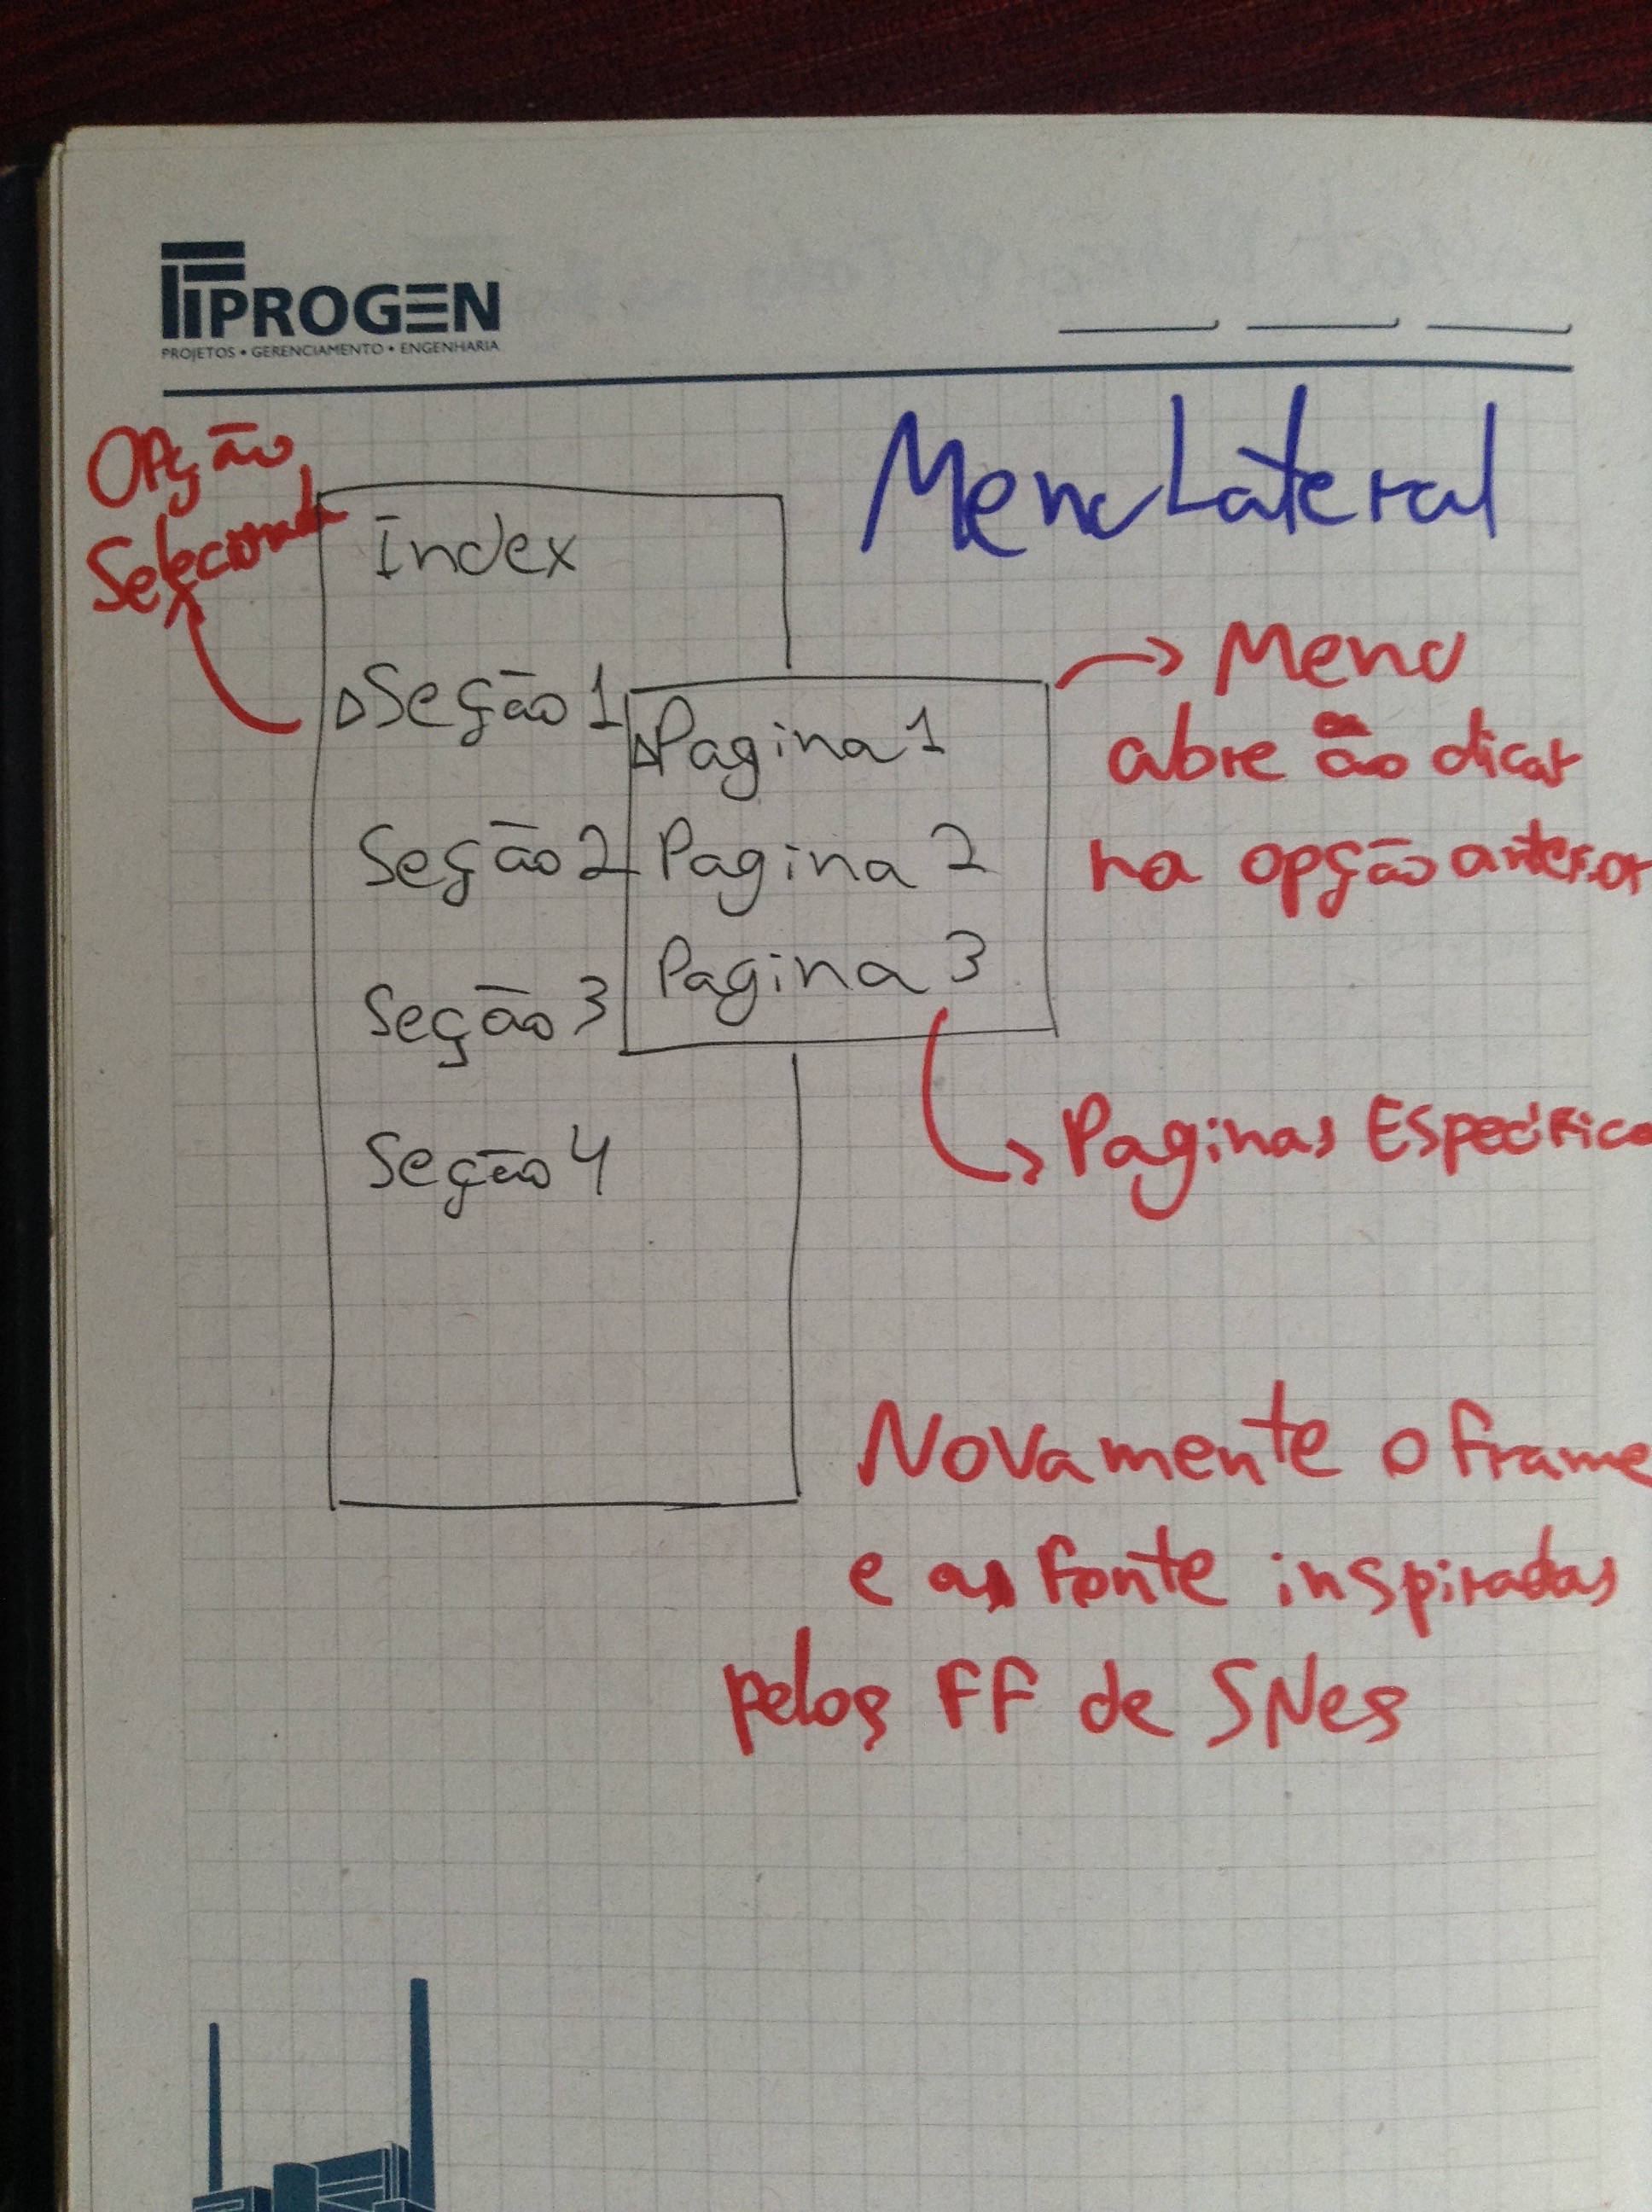 PROGEN
PROJETOS • GERENCIAMENTO • ENGENHARIA
Menu Lateral
Opção
Selecionada
Index
Seção 1
Seção 2
Seção 3
Seção 4
Pagina 1
Pagina 2
Pagina 3
Menu
abre ao clicar
na opção anterior
Paginas Específica
Novamente o frame
e as fonte inspiradas
pelos FF de SNes